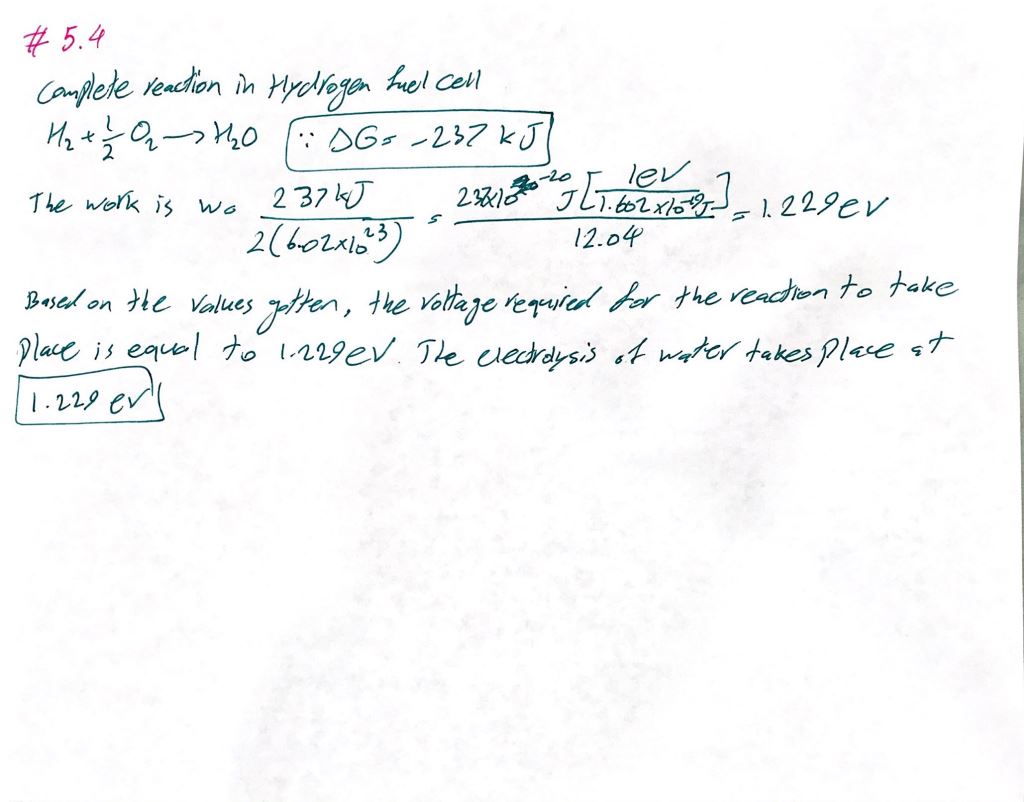 # 5.4
Complete reaction in Hydrogen fuel cell
H₂ + 1/2 O₂ → H₂O ∵ ΔG = -237 kJ
The work is W₀ 237 kJ / 2(6.02x10²³) = 237x10⁻²⁰ J [1ev / 1.602x10⁻¹⁹J] / 12.04 = 1.229ev
Based on the values gotten, the voltage required for the reaction to take
place is equal to 1.229eV. The electrolysis of water takes place at
1.229 ev